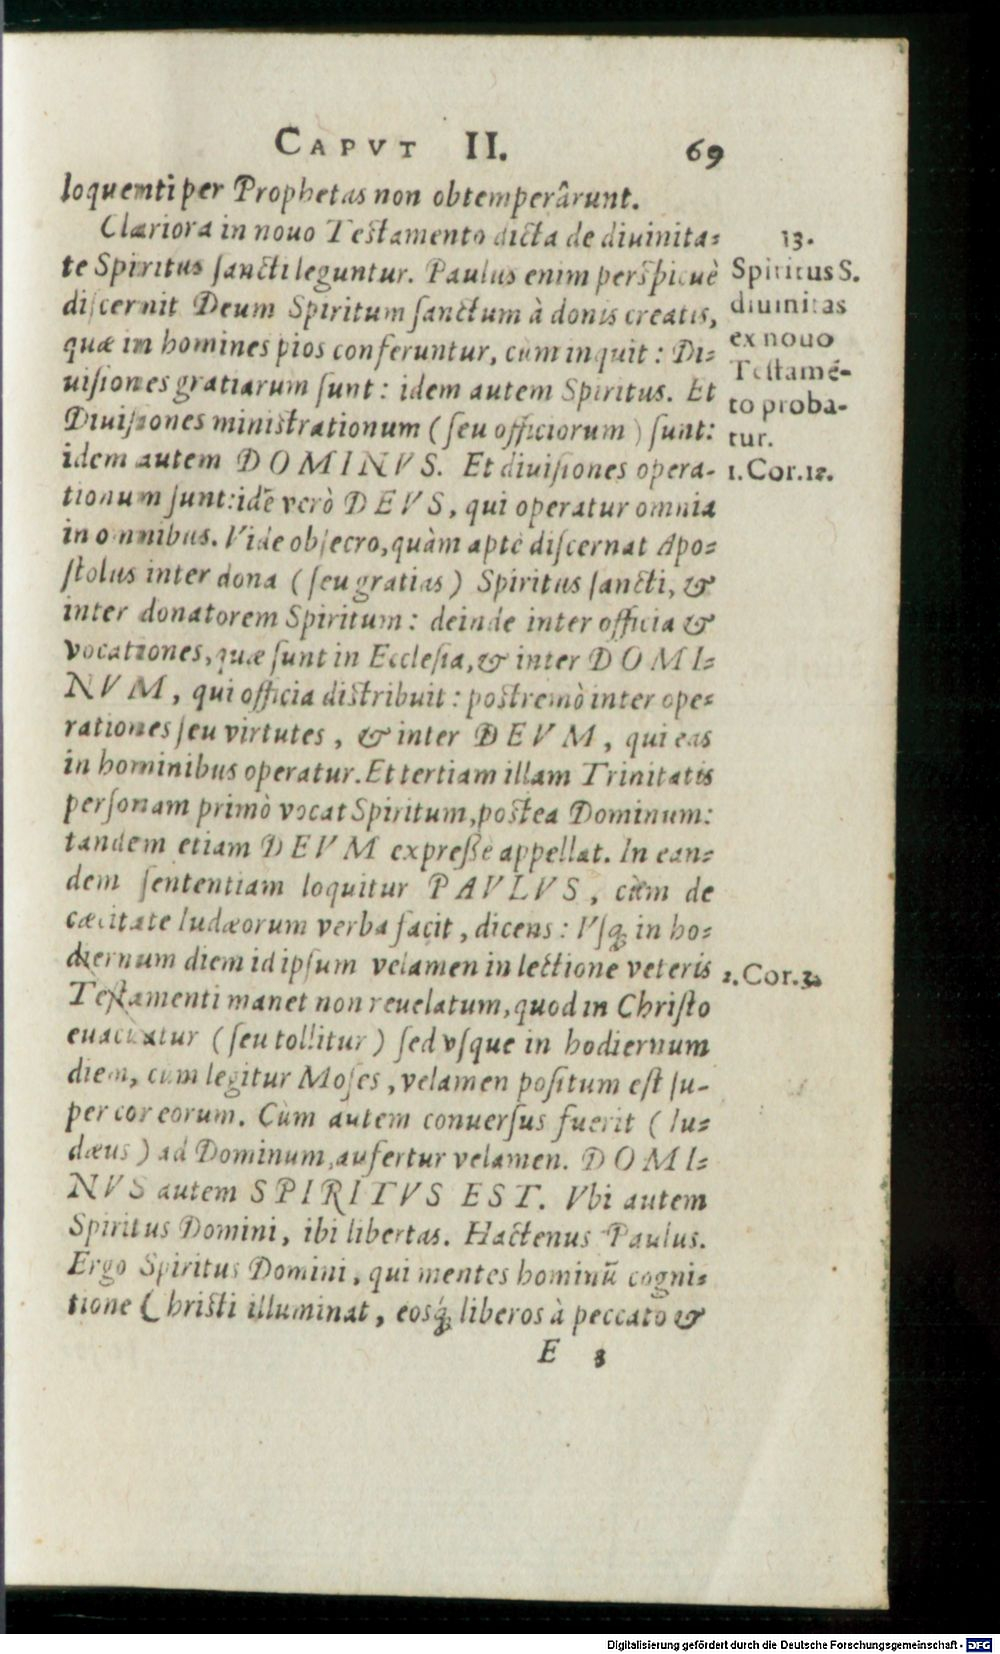 CAPVT II. 69
loquenti per Prophetas non obtemperârunt.
Clariora in nouo Testamento dicta de diuinita=
te Spiritus sancti leguntur. Paulus enim perspicuè
discernit Deum Spiritum sanctum à donis creatis,
quæ in homines pios conferuntur, cùm inquit: Di=
uisiones gratiarum sunt: idem autem Spiritus. Et
Diuisiones ministrationum (seu officiorum) sunt:
idem autem DOMINVS. Et diuisiones opera-
tionum sunt: idē verò DEVS, qui operatur omnia
in omnibus. Vide obsecro, quàm aptè discernat Apo=
stolus inter dona (seu gratias) Spiritus sancti, &
inter donatorem Spiritum: deinde inter officia &
vocationes, quæ sunt in Ecclesia, & inter DOMI=
NVM, qui officia distribuit: postremò inter ope=
rationes seu virtutes, & inter DEVM, qui eas
in hominibus operatur. Et tertiam illam Trinitatis
personam primò vocat Spiritum, postea Dominum:
tandem etiam DEVM expreßè appellat. In ean=
dem sententiam loquitur PAVLVS, cùm de
cæcitate Iudæorum verba facit, dicens: Vsq; in ho=
diernum diem id ipsum velamen in lectione veteris
Testamenti manet non reuelatum, quod in Christo
euacuatur (seu tollitur) sed vsque in hodiernum
diem, cùm legitur Moses, velamen positum est su-
per cor eorum. Cùm autem conuersus fuerit (Iu=
dæus) ad Dominum, aufertur velamen. DOMI=
NVS autem SPIRITVS EST. Vbi autem
Spiritus Domini, ibi libertas. Hactenus Paulus.
Ergo Spiritus Domini, qui mentes hominū cogni=
tione Christi illuminat, eosq́; liberos à peccato &
E 3
13.
Spiritus S.
diuinitas
ex nouo
Testamē-
to proba-
tur.
1. Cor. 12.
2. Cor. 3.
Digitalisierung gefördert durch die Deutsche Forschungsgemeinschaft - DFG